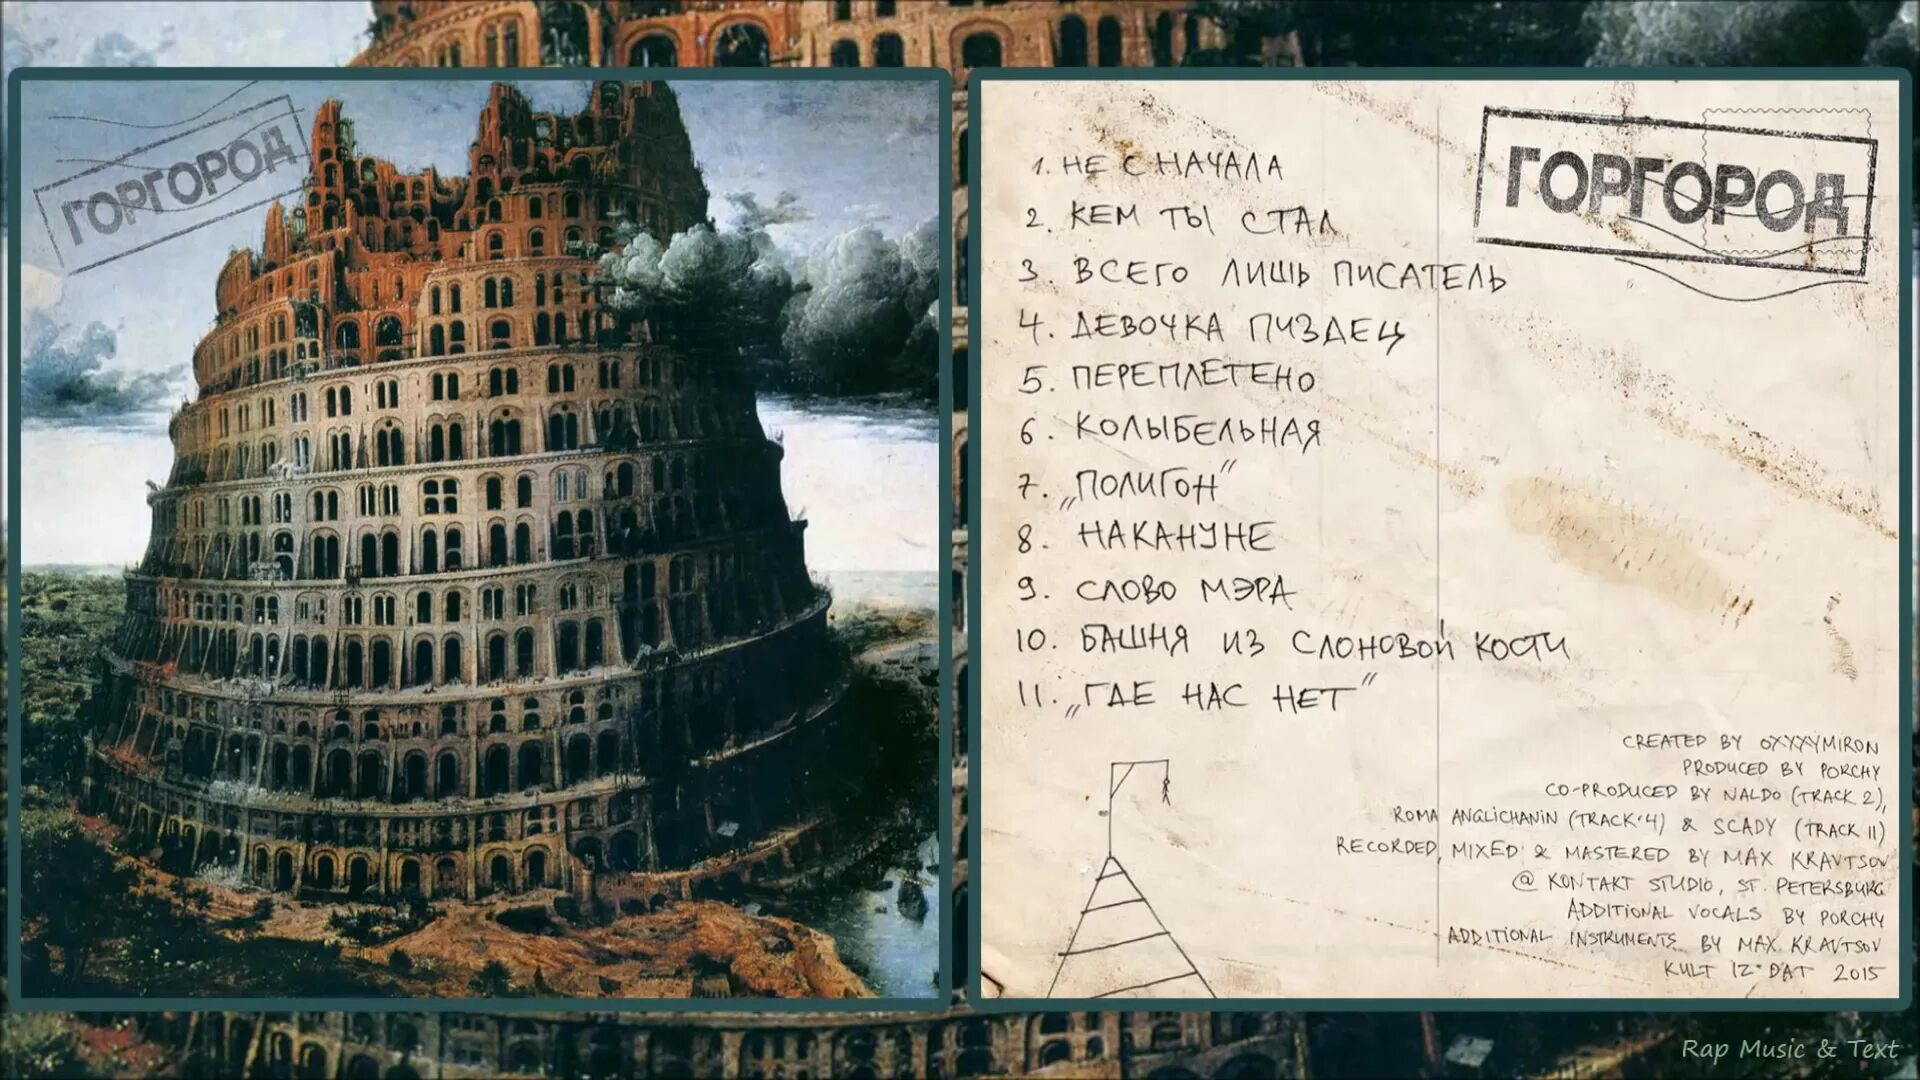 ГОРГОРОД
ГОРГОРОД
1. НЕ С НАЧАЛА
2. КЕМ ТЫ СТАЛ
3. ВСЕГО ЛИШЬ ПИСАТЕЛЬ
4. ДЕВОЧКА ПИЗДЕЦ
5. ПЕРЕПЛЕТЕНО
6. КОЛЫБЕЛЬНАЯ
7. „ПОЛИГОН”
8. НАКАНУНЕ
9. СЛОВО МЭРА
10. БАШНЯ ИЗ СЛОНОВОЙ КОСТИ
11. „ГДЕ НАС НЕТ”
CREATED BY OXXXYMIRON
PRODUCED BY PORCHY
CO-PRODUCED BY NALDO (TRACK 2),
ROMA ANGLICHANIN (TRACK 4) & SCADY (TRACK 11)
RECORDED, MIXED & MASTERED BY MAX KRAVTSOV
@ KONTAKT STUDIO, ST. PETERSBURG
ADDITIONAL VOCALS BY PORCHY
ADDITIONAL INSTRUMENTS BY MAX KRAVTSOV
KULT IZ DAT 2015
Rap Music & Text